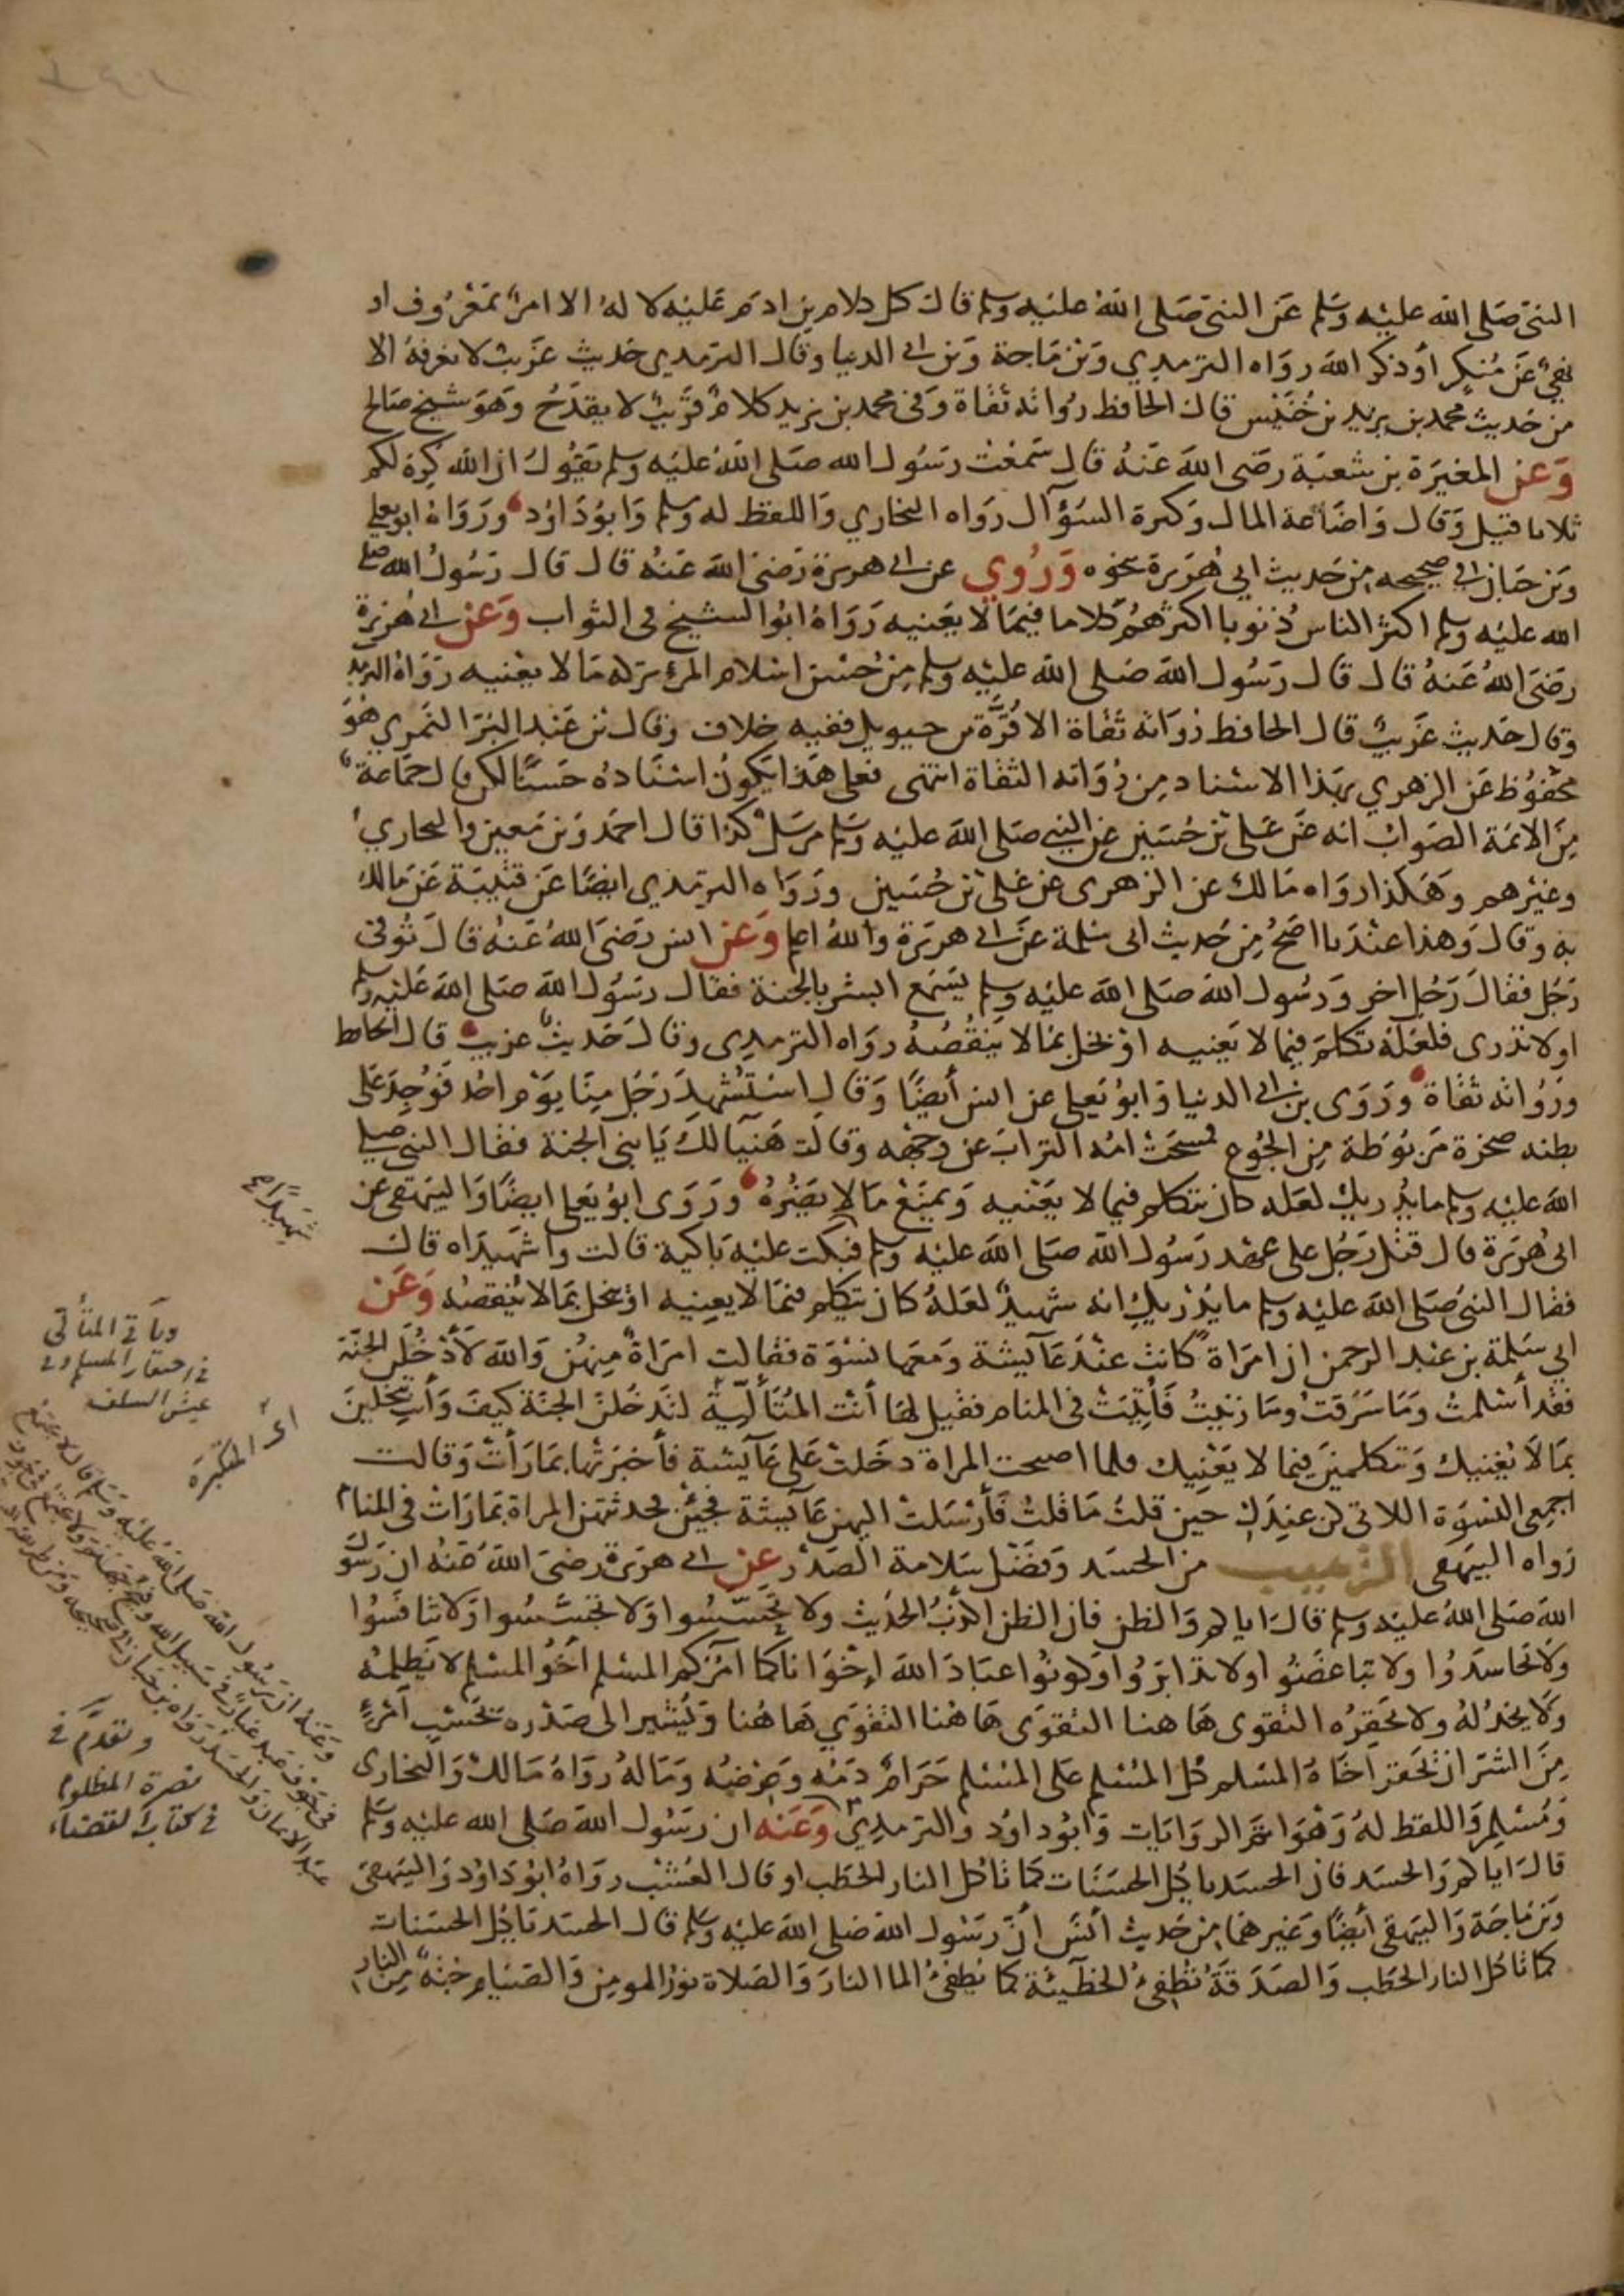 النبي صلى الله عليه وسلم عن النبي صلى الله عليه وسلم قال كل كلام بن ادم عليه لا له الا امر بمعروف او
نهي عن منكر أو ذكر الله رواه الترمدي وبن ماجة وبن ابي الدنيا وقال الترمدي حديث غريب لا نعرفه الا
من حديث محمد بن يزيد بن خنيس قال الحافظ رواته ثقاة وفي محمد بن يزيد كلام قريب لا يقدح وهو شيخ صالح
وعن المغيرة بن شعبة رضي الله عنه قال سمعت رسول الله صلى الله عليه وسلم يقول ان الله كره لكم
ثلاثا قيل وقال واضاعة المال وكثرة السؤآل رواه البخاري واللفظ له وسلم وابو داود ورواه ابو يعلي
وبن حبان في صحيحه من حديث ابي هريرة بنحوه وروي عن ابي هريرة رضي الله عنه قال قال رسول الله صلى
الله عليه وسلم اكثر الناس ذنوبا اكثرهم كلاما فيما لا يعنيه رواه ابو الشيخ في الثواب وعن ابي هريرة
رضي الله عنه قال قال رسول الله صلى الله عليه وسلم من حسن اسلام المرء تركه ما لا يعنيه رواه الترمد
وقال حديث غريب قال الحافظ رواته ثقاة الا قرة بن حيويل ففيه خلاف وقال بن عبد البر النمري هو
محفوظ عن الزهري بهذا الاسناد من رواته الثقاة انتهى فعلى هذا يكون اسناده حسنا لكن قال جماعة
من الائمة الصواب انه عن علي بن حسين عن النبي صلى الله عليه وسلم مرسل كذا قال احمد وبن معين والبخاري
وغيرهم وهكذا رواه مالك عن الزهري عن علي بن حسين ورواه الترمذي ايضا عن قتيبة عن مالك
به وقال وهذا عندنا اصح من حديث ابي سلمة عن ابي هريرة والله اعلم وعن انس رضي الله عنه قال توفي
رجل فقال رجل اخر ورسول الله صلى الله عليه وسلم يسمع ابشر بالجنة فقال رسول الله صلى الله عليه وسلم
اولا تدري فلعله تكلم فيما لا يعنيه او بخل بما لا ينقصه رواه الترمدي وقال حديث غريب قال الحافظ
ورواته ثقاة وروى بن ابي الدنيا وابو يعلي عن انس أيضا وقال استشهد رجل منا يوم احد فوجد على
بطنه صخرة مربوطة من الجوع فمسحت امه التراب عن وجهه وقالت هنيا لك يا بني الجنة فقال النبي صلى
الله عليه وسلم ما يدريك لعله كان يتكلم فيما لا يعنيه ويمنع ما لا يضره وروى ابو يعلي ايضا والبيهقي عن
ابي هريرة قال قتل رجل على عهد رسول الله صلى الله عليه وسلم فبكت عليه باكية قالت وا شهيداه قال
فقال النبي صلى الله عليه وسلم ما يدريك انه شهيد لعله كان يتكلم فيما لا يعنيه او يبخل بما لا ينقصه وعن
ابي سلمة بن عبد الرحمن ان امراة كانت عند عآيشة ومعها نسوة فقالت امراة منهن والله لأدخلن الجنة
فقد أسلمت وما سرقت وما زنيت فأتيت في المنام فقيل لها أنت المتألية لتدخلن الجنة كيف وأنت تبخلين
بما لا يغنيك وتتكلمين فيما لا يعنيك فلما اصبحت المراة دخلت على عآيشة فأخبرتها بما رأت وقالت
اجمعي النسوة اللاتي كن عندك حين قلت ما قلت فأرسلت اليهن عآيشة فجئن فحدثتهن المراة بما رات في المنام
رواه البيهقي الترهيب من الحسد وفضل سلامة الصدر عن ابي هريرة رضي الله عنه ان رسول
الله صلى الله عليه وسلم قال اياكم والظن فان الظن اكذب الحديث ولا تحسسوا ولا تجسسوا ولا تنافسوا
ولا تحاسدوا ولا تباغضوا ولا تدابروا وكونوا عباد الله إخوانا كما امركم المسلم أخو المسلم لا يظلمه
ولا يخذله ولا يحقره التقوى هاهنا التقوى هاهنا التقوى هاهنا ويشير الى صدره بحسب امرئ
من الشر ان يحقر اخاه المسلم كل المسلم على المسلم حرام دمه وعرضه وماله رواه مالك والبخاري
ومسلم واللفظ له وهو اتم الروايات وابو داود والترمدي وعنه ان رسول الله صلى الله عليه وسلم
قال اياكم والحسد فان الحسد ياكل الحسنات كما تاكل النار الحطب او قال العشب رواه ابو داود والبيهقي
وبن ماجة والبيهقي أيضا وغيرهما من حديث أنس أن رسول الله صلى الله عليه وسلم قال الحسد ياكل الحسنات
كما تاكل النار الحطب والصدقة تطفئ الخطيئة كما يطفئ الما النار والصلاة نور المومن والصيام جنة من النار
شهيدا صح
وياتي المتألي
في احتقار المسلم وفي
عيش السلف
اي المتكبرة
وعنه ان رسول الله صلى الله عليه وسلم قال لا يجتمع
في جوف عبد غبار في سبيل الله وفيح جهنم ولا يجتمع في جوف
عبد الايمان والحسد رواه بن حبان في صحيحه ومن طريقه
وتقدم في
نصرة المظلوم
في كتاب القضاء